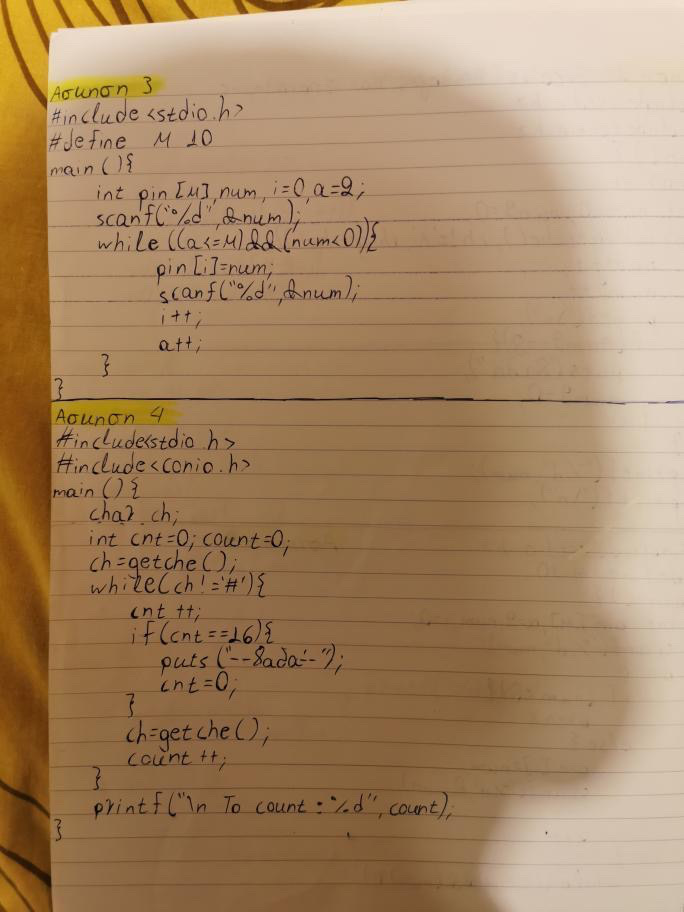 Άσκηση 3
#include <stdio.h>
#define M 10
main(){
int pin[M],num, i=0,a=2;
scanf("%d",&num);
while ((a<=M)&&(num<0)){
pin[i]=num;
scanf("%d",&num);
i++;
a++;
}
}
Άσκηση 4
#include<stdio.h>
#include<conio.h>
main(){
char ch;
int cnt=0; count=0;
ch=getche();
while(ch!='#'){
cnt++;
if(cnt==16){
puts("--8ada--");
cnt=0;
}
ch=getche();
count++;
}
printf("\n To count:%d",count);
}